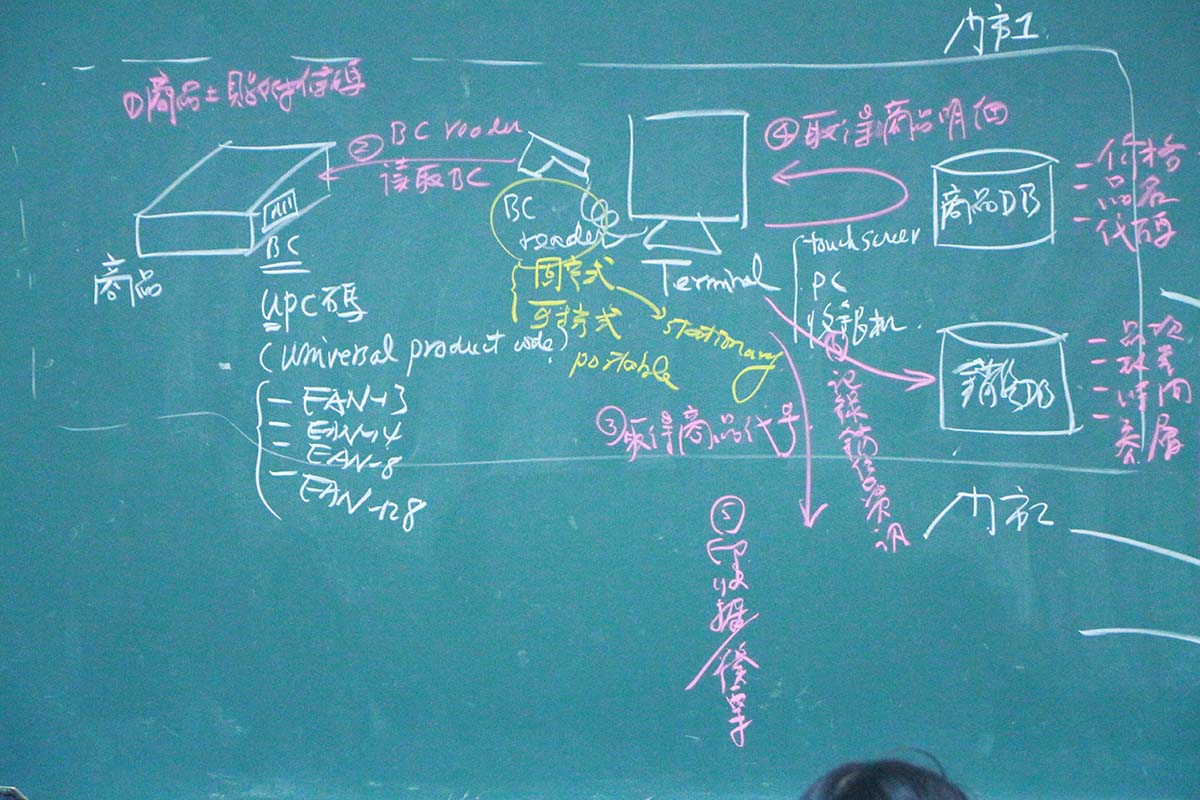 门市1
①商品上贴附条码
② BC reader
读取BC
④取得商品明细
商品DB
-价格
-品名
-代码
BC
reader
BC
商品
UPC码
(Universal product code)
- EAN-13
- EAN-14
- EAN-8
- EAN-128
固定式
手持式
stationary
portable
Terminal
touch screen
PC
收银机
③取得商品代号
销售DB
-品次
-时间
记录销售资讯
⑤
门市2